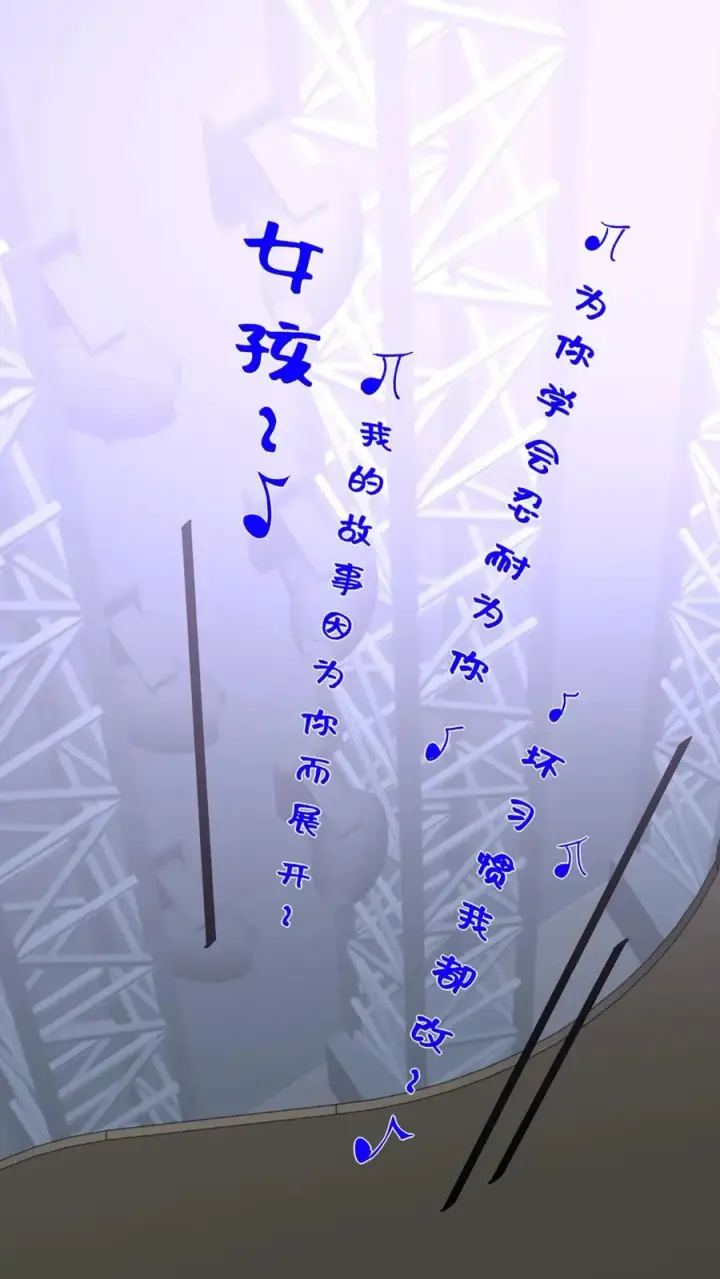 为你学会忍耐为你
坏习惯我都改~
我的故事因为你而展开~
女孩~